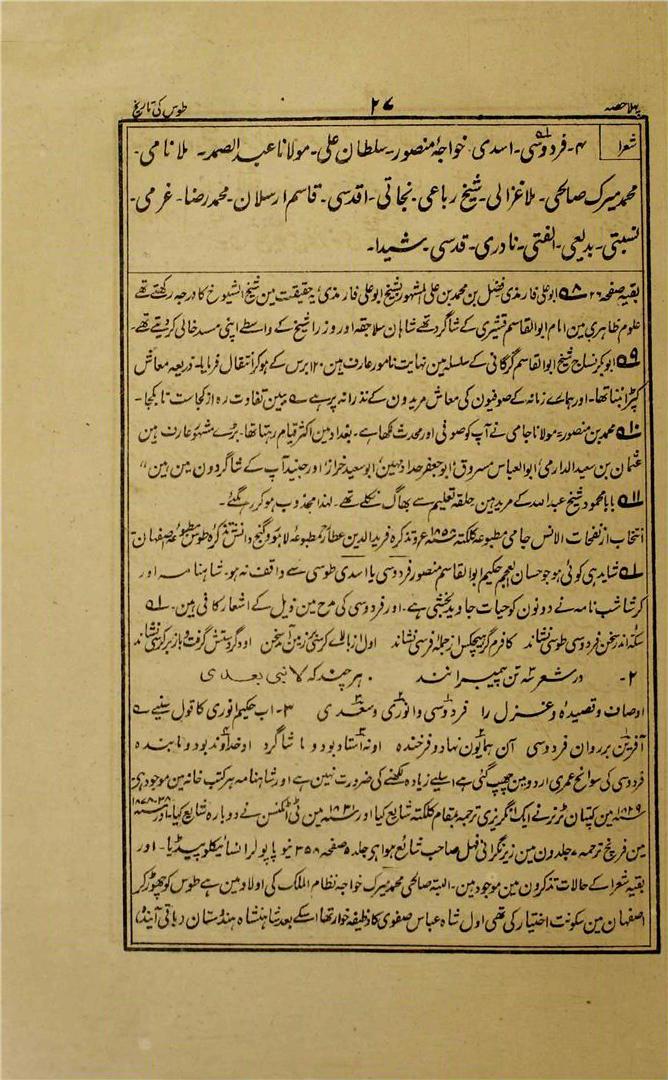 پہلا حصہ ۲۷ طوس کی تاریخ
شعرا ۴- فردوسی- اسدی- خواجۂ منصور- سلطان علی- مولانا عبد الصمد- ملا نامی-
محمد میرک صالحی- ملا غزالی- شیخ رباعی- نجاتی- اقدسی- قاسم ارسلان- محمد رضا- غرمی-
نسبتی- بدیعی- الفتی- نادری- قدسی- شیدا-
بقیہ صفحہ ۲۶ ۸ ابو علی فارمذی فضل بن محمد بن علی المشہور بشیخ ابو علی فارمذی، یہ حقیقت مین شیخ الشیوخ کا درجہ رکھتے تھے
علوم ظاہری مین امام ابو القاسم قشیری کے شاگرد تھے شاہان سلاجقہ اور وزرا شیخ کے واسطے اپنی مسند خالی کر دیتے تھے-
۹ ابوبکر نساج شیخ ابو القاسم گرگانی کے سلسلہ مین نہایت نامور عارف ہین ۱۲۰ برس کے ہوکر انتقال فرمایا- ذریعہ معاش
کپڑا بننا تھا- اور ہمارے زمانہ کے صوفیون کی معاش مریدون کے نذرانہ پر ہے ے ببین تفاوت رہ از کجاست تا بکجا-
۱۰ محمد بن منصور، مولانا جامی نے آپ کو صوفی اور محدث لکھا ہے- بغداد مین اکثر قیام رہتا تھا- بڑے مشہور عارف ہین
عثمان بن سعید الدارمی، ابو العباس مسروق، ابو جعفر حداد، ابو سعید خراز، اور جنید آپ کے شاگردون مین ہین "
۱۱ بابا محمود شیخ عبد اللہ کے مرید ہین حلقۂ تعلیم سے بھاگ نکلے تھے- لہذا مجذوب ہوکر رہ گئے-
انتخاب از نفحات الانس جامی مطبوعہ کلکتہ ۱۸۵۸ء و تذکرہ فرید الدین عطار مطبوعہ لاہور و گنج دانش تذکرہ طوس مطبوعہ صفہان
۱ شاید ہی کوئی ہو جو حسان العجم حکیم ابو القاسم منصور فردوسی یا اسدی طوسی سے واقف نہ ہو- شاہنامہ اور
کرشاشب نامہ نے دونون کو حیات جاوید بخشی ہے- اور فردوسی کی مدح مین ذیل کے اشعار کافی ہین- ۱
سکہ اندر سخن فردوسی طوسی نشاند کافرم گر ہیچکس از جملہ فرسی نشاند اول از بالاے کرسی بر زمین آمد سخن او دگر دستش گرفت و باز بر کرسی نشاند
۲- در شعر سہ تن پیمبرانند ہر چند کہ لا نبی بعدی
اوصاف و قصیدہ و غزل را فردوسی و انوری و سعدی ۳- اب حکیم انوری کا قول سنیے ے
آفرین بر روان فردوسی آن ہمایون نہاد و فرخندہ او نہ استاد بود و ما شاگرد او خداوند بود و ما بندہ
فردوسی کی سوانح عمری اردو مین چھپ گئی ہے اسلیے زیادہ لکھنے کی ضرورت نہین ہے اور شاہنامہ ہر کتب خانہ مین موجود ہی
۱۸۲۹ء مین کپتان ٹرنر نے ایک انگریزی ترجمہ بمقام کلکتہ شایع کیا اور ۱۸۳۱ء مین ٹی اٹکنسن نے دوبارہ شایع کیا- اور ۳۸-۱۸۷۸ء
مین فرنچ ترجمہ ۷ جلدون مین زیر نگرانی صاحب شائع ہوا ہی جلد ۵ صفحہ ۳۵۸ نیو پاپولر انسائیکلوپیڈیا- اور
بقیہ شعرا کے حالات تذکرون مین موجود ہین- البتہ صالحی محمد میرک خواجہ نظام الملک کی اولاد مین ہے طوس کو چھوڑ کر
اصفہان مین سکونت اختیار کی تھی اول شاہ عباس صفوی کا وظیفہ خوار تھا اسکے بعد شاہنشاہ ہندستان (باقی آیندہ)